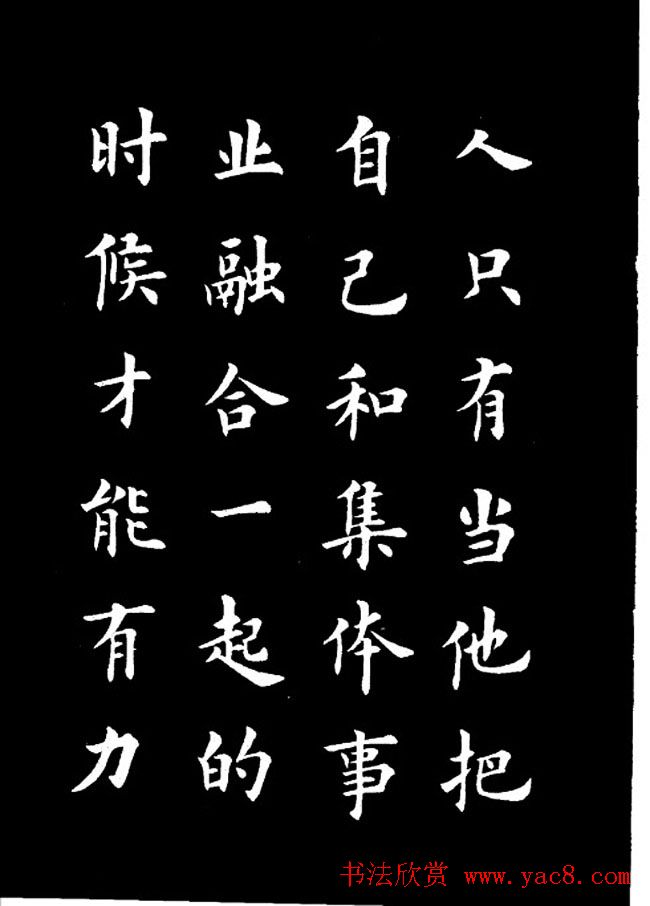 人只有当他把
自己和集体事
业融合一起的
时候才能有力
书法欣赏 www.yac8.com